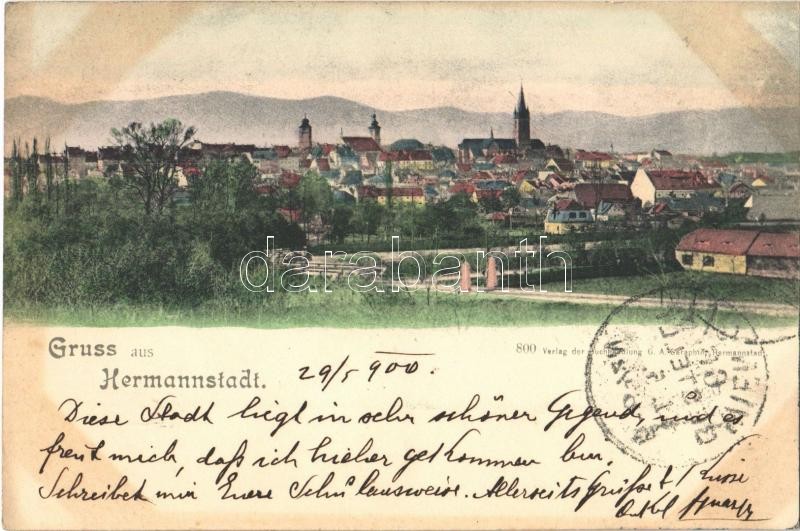 darabanth
Gruss aus
Hermannstadt.
800 Verlag der Buchhandlung G. A. Seraphin, Hermannstadt.
29/5 900
Diese Stadt liegt in sehr schöner Gegend, und es
freut mich, daß ich hieher gekommen bin.
Schreibet mir Euere Schulausweise. Allerseits grüßet Eure
Onkel